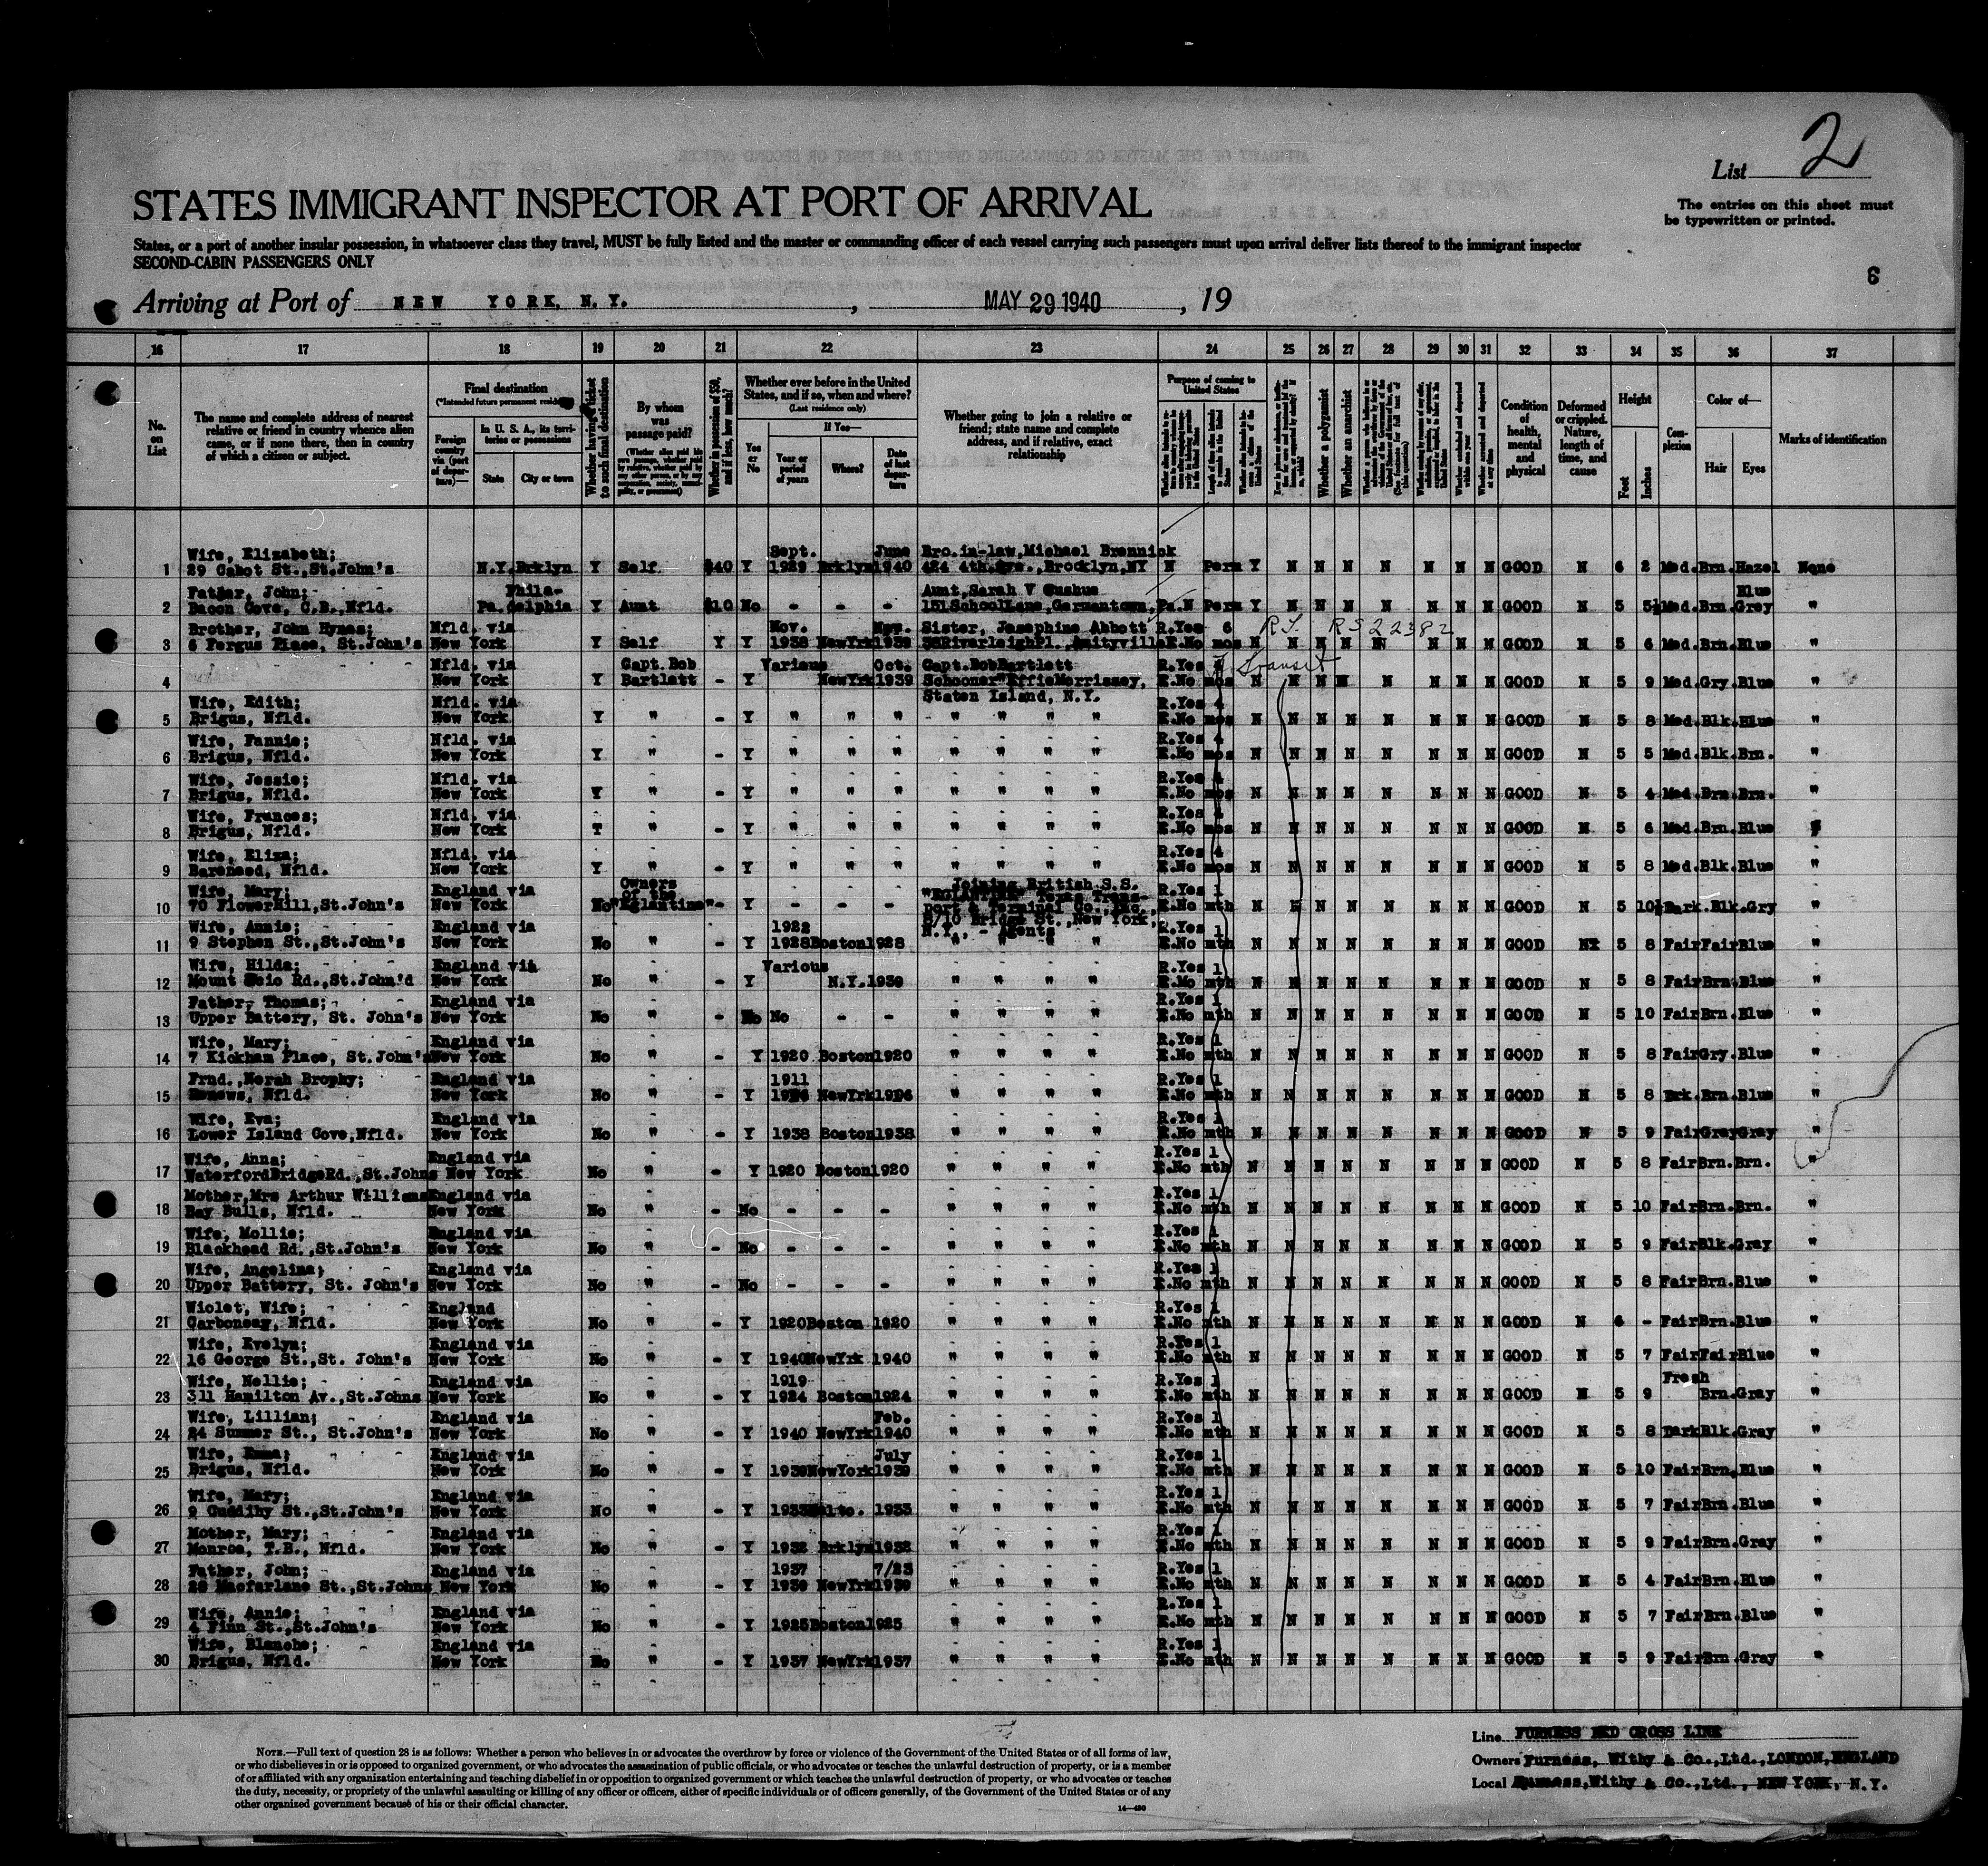 List 2
The entries on this sheet must
be typewritten or printed.
STATES IMMIGRANT INSPECTOR AT PORT OF ARRIVAL
States, or a port of another insular possession, in whatsoever class they travel, MUST be fully listed and the master or commanding officer of each vessel carrying such passengers must upon arrival deliver lists thereof to the immigrant inspector
SECOND-CABIN PASSENGERS ONLY
6
Arriving at Port of NEW YORK, N. Y., MAY 29 1940, 19
16 17 18 19 20 21 22 23 24 25 26 27 28 29 30 31 32 33 34 35 36 37
No. on List
The name and complete address of nearest
relative or friend in country whence alien
came, or if none there, then in country
of which a citizen or subject.
Final destination
(*Intended future permanent residence)
Foreign country via (port of departure)—
In U. S. A., its territories or possessions
State
City or town
Whether having a ticket to such final destination
By whom was passage paid?
Whether in possession of $50, and if less, how much?
Whether ever before in the United
States, and if so, when and where?
(Last residence only)
Yes or No
If Yes—
Year or period of years
Where?
Date of last departure
Whether going to join a relative or
friend; state name and complete
address, and if relative, exact
relationship
Purpose of coming to United States
Whether a polygamist
Whether an anarchist
Condition of health, mental and physical
Deformed or crippled. Nature, length of time, and cause
Height
Feet
Inches
Complexion
Color of—
Hair
Eyes
Marks of identification
1 Wife, Elizabeth; 29 Cabot St.,St.John's N.Y. Brklyn Y Self $40 Y Sept. 1929 Brklyn June 1940 Bro.in-law,Michael Brennick 424 4th.Ave.,Brocklyn,NY N Perm Y N N N N N N N GOOD N 6 2 Med. Brn. Hazel None
2 Father, John; Bacon Cove, C.B.,Nfld. Pa. Phila-delphia Y Aunt $10 No - - - Aunt,Sarah V Cushue 151SchoolLane,Germantown,Pa. N Perm Y N N N N N N N GOOD N 5 5½ Med. Brn. Blue Grey "
3 Brother, John Hynes; 6 Fergus Place, St.John's Nfld. via New York Y Self Y Y Nov. 1938 NewYrk Nov. 1938 Sister, Josephine Abbott Riverleigh Pl., Amityville R.Yes E.No 6 mos N N N N N N GOOD N 5 6 Med. Brn. Blue "
RS22382
4 Nfld. via New York Y Capt. Bob Bartlett - Y Various NewYrk Oct. 1939 Capt.BobBartlett Schooner"EffieMorrissey, Staten Island, N.Y. R.Yes E.No 4 mos N N N N N N N N GOOD N 5 9 Med. Gry. Blue "
Transit
5 Wife, Edith; Brigus, Nfld. Nfld. via New York Y " - Y " " " " " " " R.Yes E.No 4 mos N N N N N N N N GOOD N 5 8 Med. Blk. Blue "
6 Wife, Fannie; Brigus, Nfld. Nfld. via New York Y " - Y " " " " " " " R.Yes E.No 4 mos N N N N N N N N GOOD N 5 5 Med. Blk. Brn. "
7 Wife, Jessie; Brigus, Nfld. Nfld. via New York Y " - Y " " " " " " " R.Yes E.No 4 mos N N N N N N N N GOOD N 5 4 Med. Brn. Brn. "
8 Wife, Frances; Brigus, Nfld. Nfld. via New York Y " - Y " " " " " " " R.Yes E.No 4 mos N N N N N N N N GOOD N 5 6 Med. Brn. Blue "
9 Wife, Eliza; Bareneed, Nfld. Nfld. via New York Y " - Y " " " " " " " R.Yes E.No 4 mos N N N N N N N N GOOD N 5 8 Med. Blk. Blue "
10 Wife, Mary; 70 FlowerHill,St.John's England via New York No Owners of the "Eglantine" - Y - - - Joining British S.S. "EGLANTINE" Terminal Co., Inc. 8/10 Bridge St., New York, N.Y., - Agents R.Yes E.No 1 mth N N N N N N N N GOOD N 5 10½ Dark. Blk. Gry "
11 Wife, Annie; 9 Stephen St.,St.John's England via New York No " - Y 1922 1928 Boston 1928 " " " " R.Yes E.No 1 mth N N N N N N N N GOOD N 5 8 Fair Fair Blue "
12 Wife, Hilda; Mount Scio Rd.,St.John'd England via New York No " - Y Various N.Y. 1939 " " " " R.Yes E.No 1 mth N N N N N N N N GOOD N 5 8 Fair Brn. Blue "
13 Father, Thomas; Upper Battery, St. John's England via New York No " - No No - - " " " " R.Yes E.No 1 mth N N N N N N N N GOOD N 5 10 Fair Brn. Blue "
14 Wife, Mary; 7 Kickham Place, St.John's England via New York No " - Y 1920 Boston 1920 " " " " R.Yes E.No 1 mth N N N N N N N N GOOD N 5 8 Fair Gry. Blue "
15 Frnd.,Norah Brophy; Renews, Nfld. England via New York No " - Y 1911 NewYrk " " " " R.Yes E.No 1 mth N N N N N N N N GOOD N 5 8 Drk. Brn. Blue "
16 Wife, Eva; Lower Island Cove,Nfld. England via New York No " - Y 1938 Boston 1938 " " " " R.Yes E.No 1 mth N N N N N N N N GOOD N 5 9 Fair Gray Gray "
17 Wife, Anna; WaterfordBridgeRd.,St.Johns England via New York No " - Y 1920 Boston 1920 " " " " R.Yes E.No 1 mth N N N N N N N N GOOD N 5 8 Fair Brn. Brn. "
18 Mother,Mrs Arthur Williams Bay Bulls, Nfld. England via New York No " - No - - - " " " " R.Yes E.No 1 mth N N N N N N N N GOOD N 5 10 Fair Brn. Brn. "
19 Wife, Mollie; Blackhead Rd.,St.John's England via New York No " - No - - - " " " " R.Yes E.No 1 mth N N N N N N N N GOOD N 5 9 Fair Blk. Gray "
20 Wife, Angelina; Upper Battery, St. John's England via New York No " - No - - - " " " " R.Yes E.No 1 mth N N N N N N N N GOOD N 5 8 Fair Brn. Blue "
21 Violet, Wife; Carbonear, Nfld. England New York No " - Y 1920 Boston 1920 " " " " R.Yes E.No 1 mth N N N N N N N N GOOD N 6 - Fair Brn. Blue "
22 Wife, Evelyn; 16 George St.,St. John's England via New York No " - Y 1940 NewYrk 1940 " " " " R.Yes E.No 1 mth N N N N N N N N GOOD N 5 7 Fair Fair Blue "
23 Wife, Nellie; 311 Hamilton Av.,St.Johns England via New York No " - Y 1919 1924 Boston 1924 " " " " R.Yes E.No 1 mth N N N N N N N N GOOD N 5 9 Fresh Brn. Gray "
24 Wife, Lillian; 24 Summer St., St.John's England via New York No " - Y 1940 NewYrk Feb. 1940 " " " " R.Yes E.No 1 mth N N N N N N N N GOOD N 5 8 Dark Blk. Gray "
25 Wife, Emma; Brigus, Nfld. England via New York No " - Y 1939 NewYork July 1939 " " " " R.Yes E.No 1 mth N N N N N N N N GOOD N 5 10 Fair Brn. Blue "
26 Wife, Mary; 9 St.,St.John's England via New York No " - Y 1933 Balto. 1933 " " " " R.Yes E.No 1 mth N N N N N N N N GOOD N 5 7 Fair Brn. Blue "
27 Mother, Mary; Monroe, T.B., Nfld. England via New York No " - Y 1932 Brklyn 1932 " " " " R.Yes E.No 1 mth N N N N N N N N GOOD N 5 9 Fair Brn. Gray "
28 Father, John; 28 Macfarlane St.,St.Johns England via New York No " - Y 1937 1939 NewYrk 7/23 1939 " " " " R.Yes E.No 1 mth N N N N N N N N GOOD N 5 4 Fair Brn. Blue "
29 Wife, Annie; 4 Finn St.,St.John's England via New York No " - Y 1925 Boston 1925 " " " " R.Yes E.No 1 mth N N N N N N N N GOOD N 5 7 Fair Brn. Blue "
30 Wife, Blanche; Brigus, Nfld. England via New York No " - Y 1937 NewYrk 1937 " " " " R.Yes E.No 1 mth N N N N N N N N GOOD N 5 9 Fair Brn. Gray "
NOTE.—Full text of question 28 is as follows: Whether a person who believes in or advocates the overthrow by force or violence of the Government of the United States or of all forms of law,
or who disbelieves in or is opposed to organized government, or who advocates the assassination of public officials, or who advocates or teaches the unlawful destruction of property, or is a member
of or affiliated with any organization entertaining and teaching disbelief in or opposition to organized government or which teaches the unlawful destruction of property, or who advocates or teaches
the duty, necessity, or propriety of the unlawful assaulting or killing of any officer or officers, either of specific individuals or of officers generally, of the Government of the United States or of any
other organized government because of his or their official character.
14—430
Line FURNESS RED CROSS LINE
Owners Furness, Withy & Co.,Ltd.,LONDON,ENGLAND
Local Furness,Withy & Co.,Ltd., NEW YORK, N.Y.